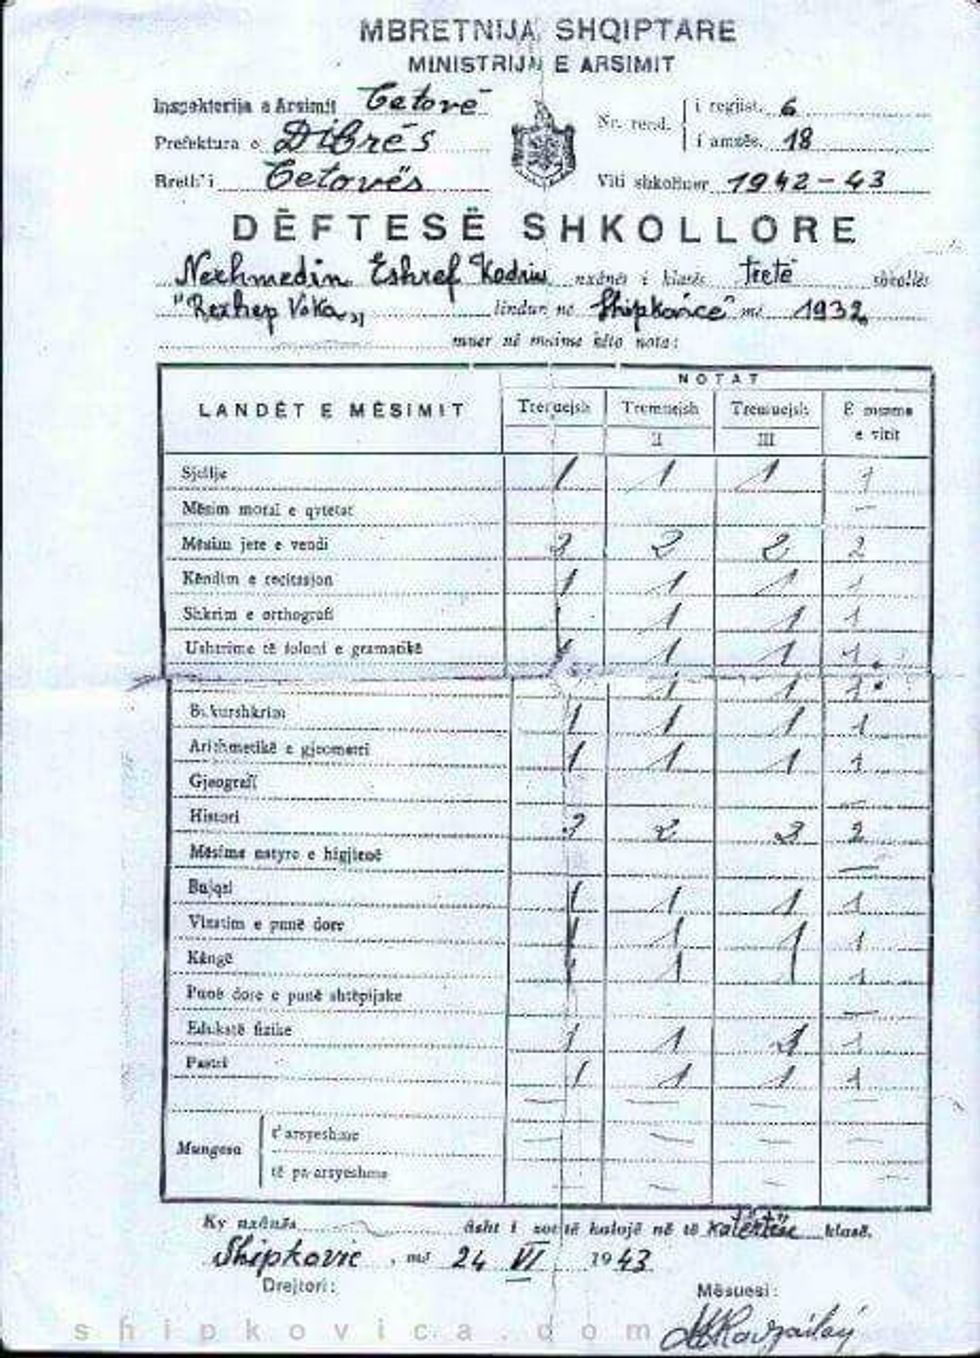 MBRETNIJA SHQIPTARE
MINISTRIJA E ARSIMIT
Inspektorija e Arsimit Tetovë
Prefektura e Dibrës
Reth'i Tetovës
Nr. rend. i regjist. 6
i amzës. 18
Viti shkolluer 1942-43
DËFTESË SHKOLLORE
Nexhmedin Eshref Kadriu nxënës i klasës tretë shkollës
"Rexhep Voka" lindun në Shipkovicë më 1932
muer në msime këto nota:
LANDËT E MËSIMIT
NOTAT
Tremuejsh Tremuejsh Tremuejsh E msume
II III e vitit
Sjellje 1 1 1 1
Mësim moral e qytetar —
Mësim jete e vendi 2 2 2 2
Këndim e recitasjon 1 1 1 1
Shkrim e orthografi 1 1 1 1
Ushtrime të foluni e gramatikë 1 1 1
1 1 1
Bukurshkrim 1 1 1 1
Arithmetikë e gjeometri 1 1 1 1
Gjeografi —
Histori 2 2 2 2
Mësime natyre e higjienë —
Bujqsi 1 1 1 1
Vizatim e punë dore 1 1 1 1
Kângë 1 1 1 1
Punë dore e punë shtëpijake —
Edukatë fizike 1 1 1 1
Pastri 1 1 1 1
Mungesa
t'arsyeshme — — — —
të pa-arsyeshme — — — —
Ky nxënës âsht i zoti të kalojë në të katërtën klasë.
Shipkovic, më 24 VI 1943
Drejtori: Mësuesi:
shipkovica.com